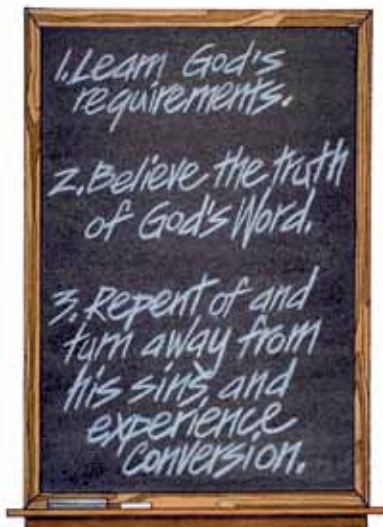 1. Learn God's
requirements.
2. Believe the truth
of God's Word.
3. Repent of and
turn away from
his sins, and
experience
conversion.